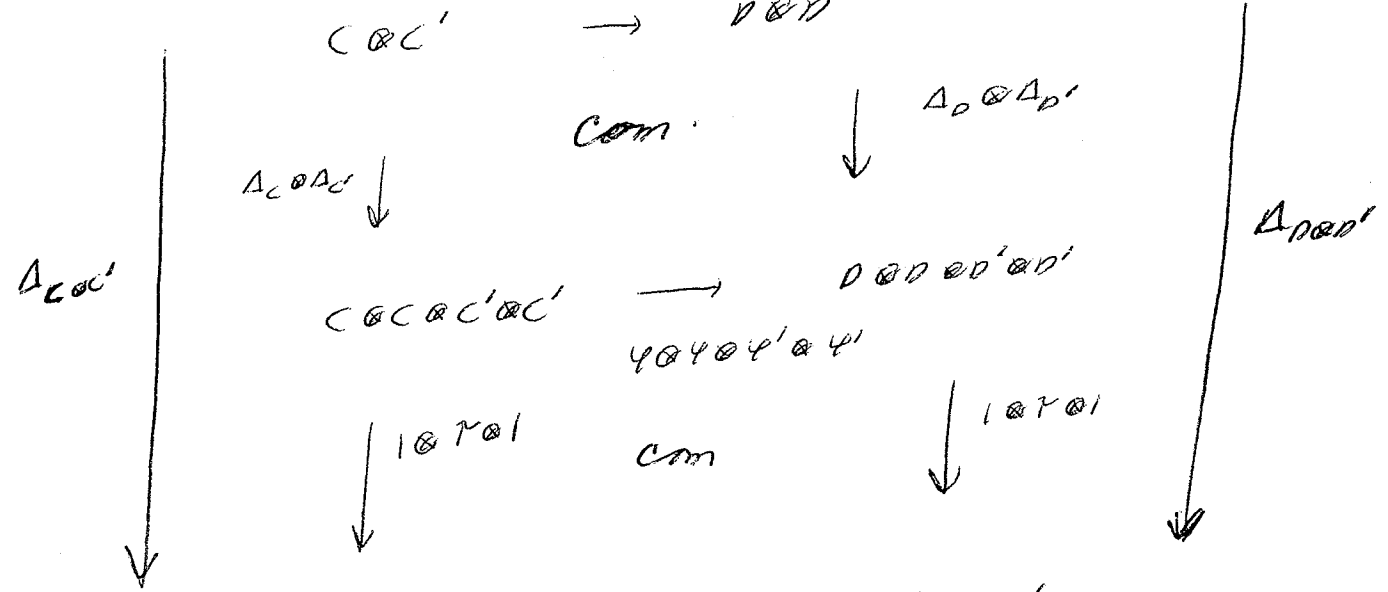 C ⊗ C' → D ⊗ D
Com.
Δ_D ⊗ Δ_D'
Δ_C ⊗ Δ_C'
Δ_D⊗D'
Δ_C⊗C'
C ⊗ C ⊗ C' ⊗ C' → D ⊗ D ⊗ D' ⊗ D'
φ ⊗ φ ⊗ φ' ⊗ φ'
1 ⊗ τ ⊗ 1
1 ⊗ τ ⊗ 1
com